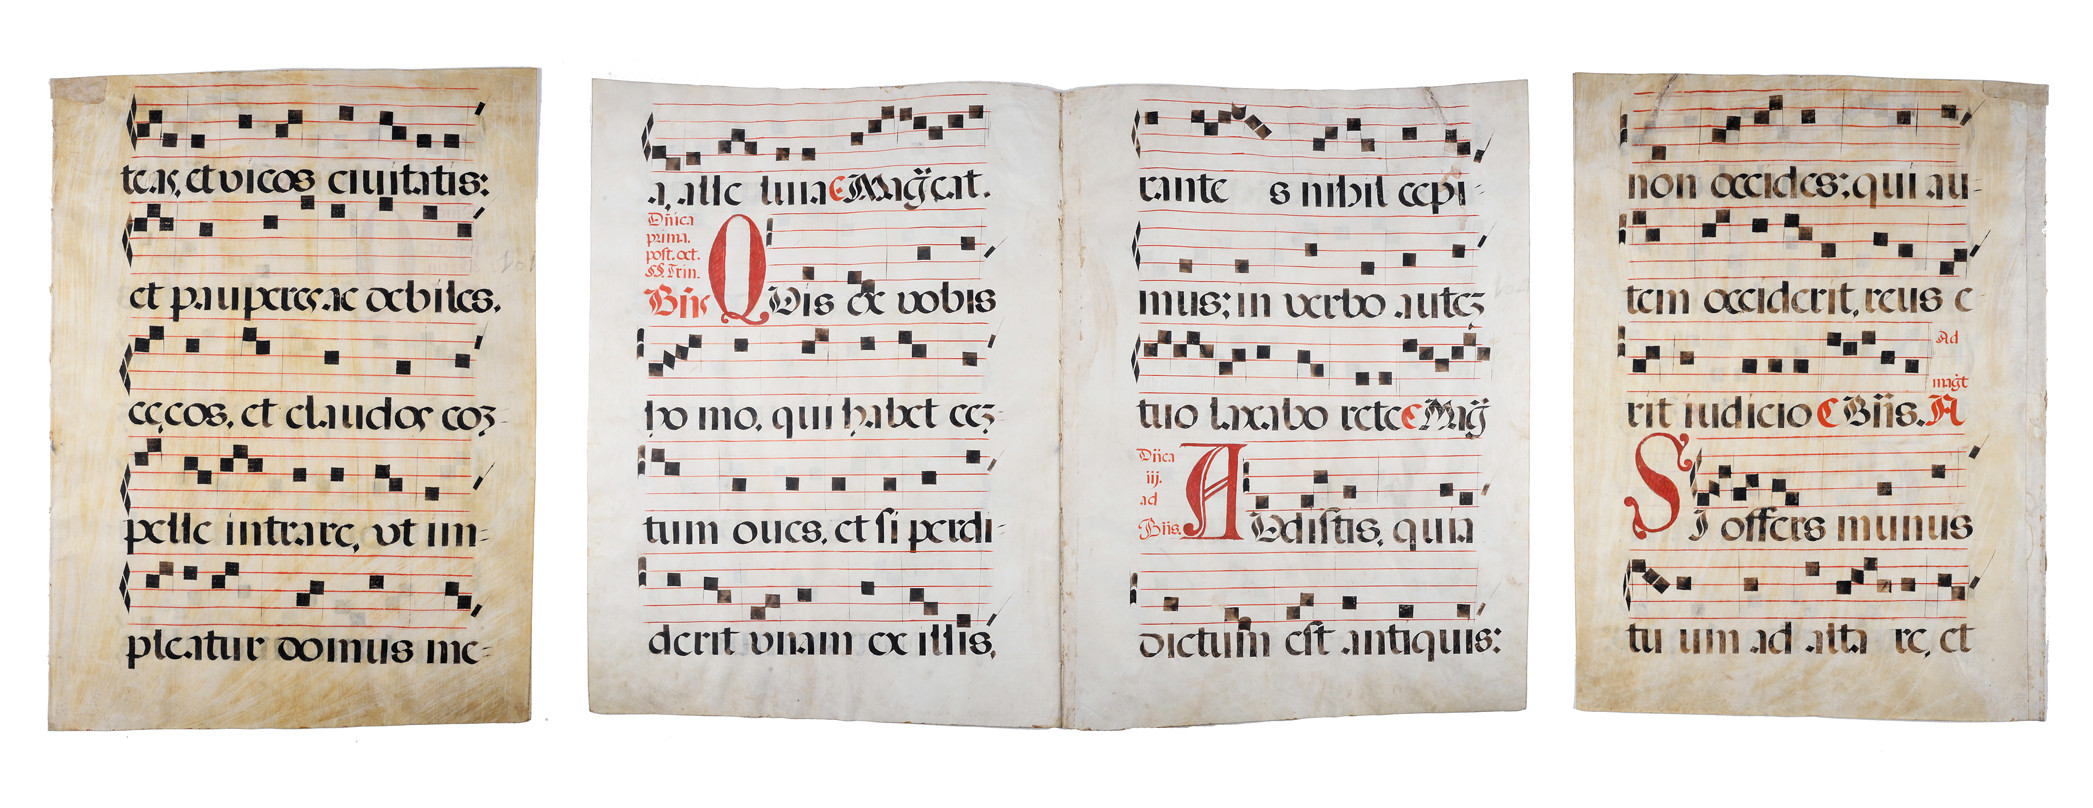 teas, et vicos ciuitatis:
et pauperes ac debiles,
cęcos, et claudos coȝ-
pelle intrare, vt im-
pleatur domus me-
a, alle luiaE Mag̃cat.
Dñica
prima.
post. oct.
SS. Trin.
Bñs QVis ex vobis
ho mo, qui habet cēȝ-
tum oues, et si perdi-
derit vnam ex illis,
tante s nihil cepi-
mus; in verbo auteȝ
tuo laxabo reteE Mag̃
Dñca
iij.
ad
Bñs. AVdistis, quia
dictum est antiquis:
non occides; qui au-
tem occiderit, reus e-
Ad
mag̃t
rit iudicioE Bñs. A
SI offers munus
tu um ad alta re, et